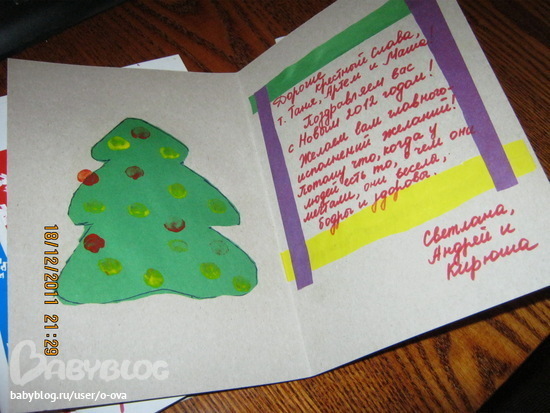 Дорогие
Крестный Слава,
т. Таня, Артём и Маша!
Поздравляем вас
с Новым 2012 годом!
Желаем вам главного-
исполнений желаний!
Потому что, когда у
людей есть то, о чем они
мечтали, они весела,
бодры и здорова.
Светлана,
Андрей и
Кирюша
18/12/2011 21:29
BABYBLOG
babyblog.ru/user/o-ova